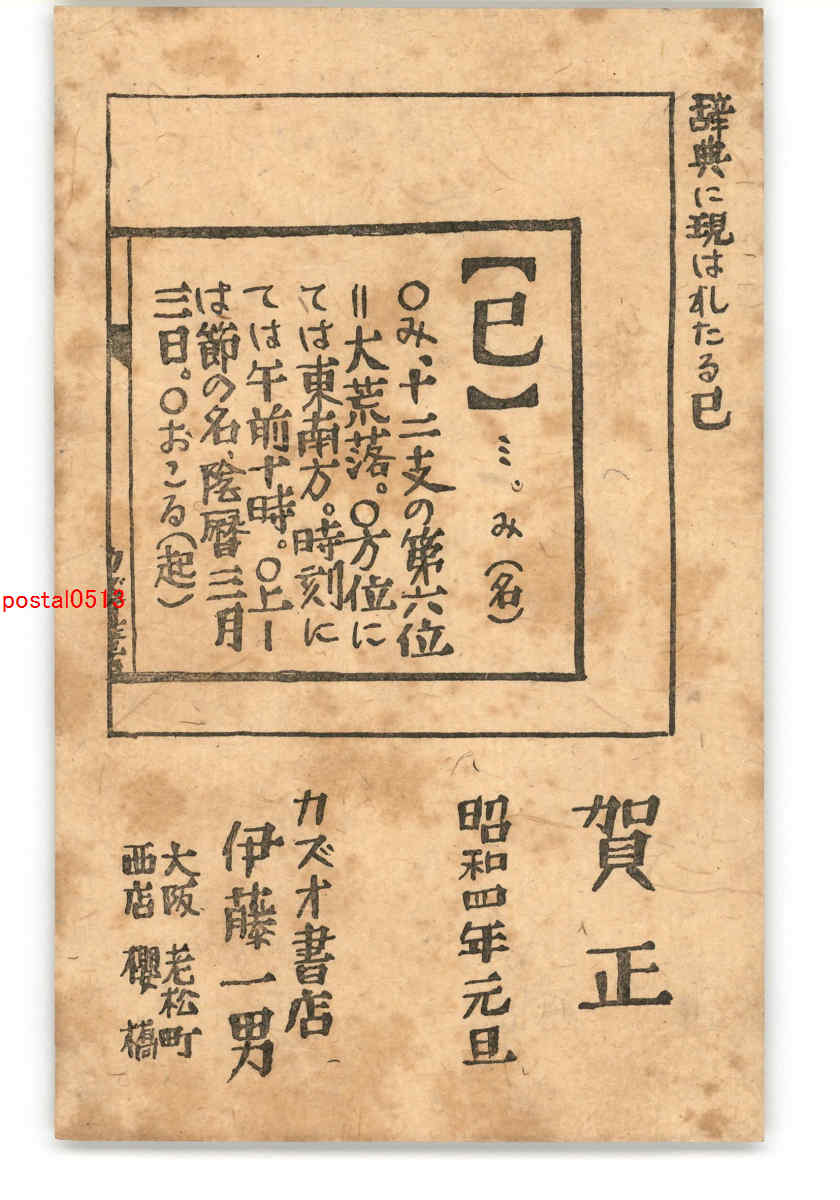 辞典に現はれたる巳
【巳】ミ。み(名)
〇み、十二支の第六位
=大荒落。〇方位に
ては東南方。時刻に
ては午前十時。〇上ー
は節の名、陰暦三月
三日。〇おこる(起)
賀正
昭和四年元旦
カズオ書店
伊藤一男
大阪 老松町
西店 櫻橋
postal0513